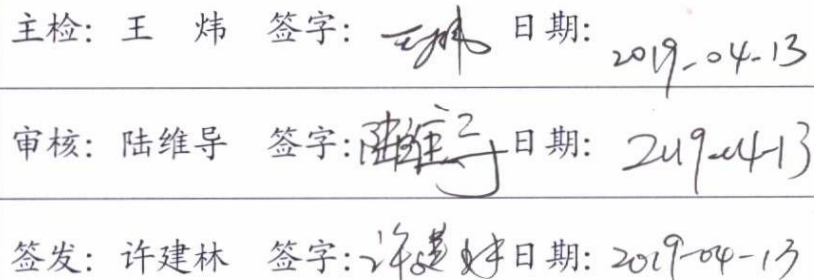 主检：王 炜 签字：王炜 日期：2019-04-13
审核：陆维导 签字：陆维导 日期：2019-04-13
签发：许建林 签字：许建林 日期：2019-04-13